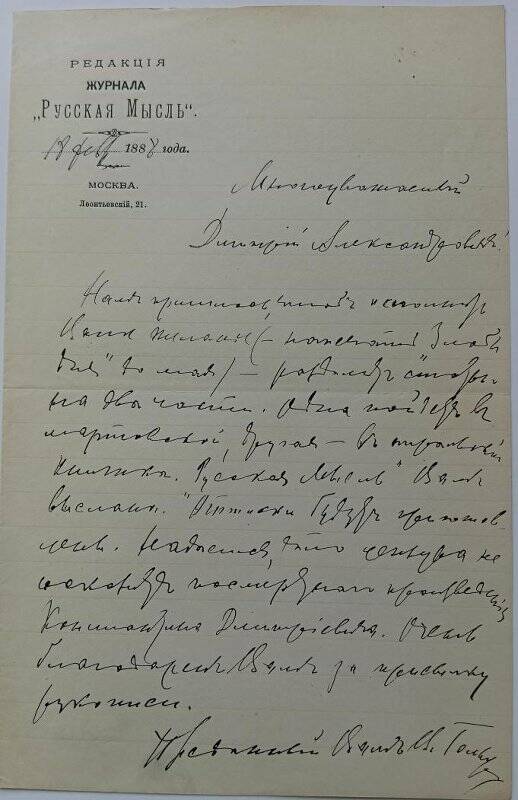 РЕДАКЦІЯ
ЖУРНАЛА
„РУССКАЯ МЫСЛЬ“.
18 1888 года.
МОСКВА.
Леонтьевскій, 21.
Многоуважаемый
Дмитрій Александровичъ!
Намъ пришлось
Ваше желаніе (– напечатать „Злобу
дня“ до мая) – раздѣлить
на двѣ части. Одна пойдетъ въ
мартовской, другая – въ апрѣльской
книжкѣ. „Русская Мысль“ Вамъ
выслана. Оттиски будутъ приготов
лены. Надѣемся, что цензура не
послѣдняго произведенія
Константина Дмитріевича. Очень
благодаренъ Вамъ за присылку
рукописи.
Преданный Вамъ В. Гольцевъ